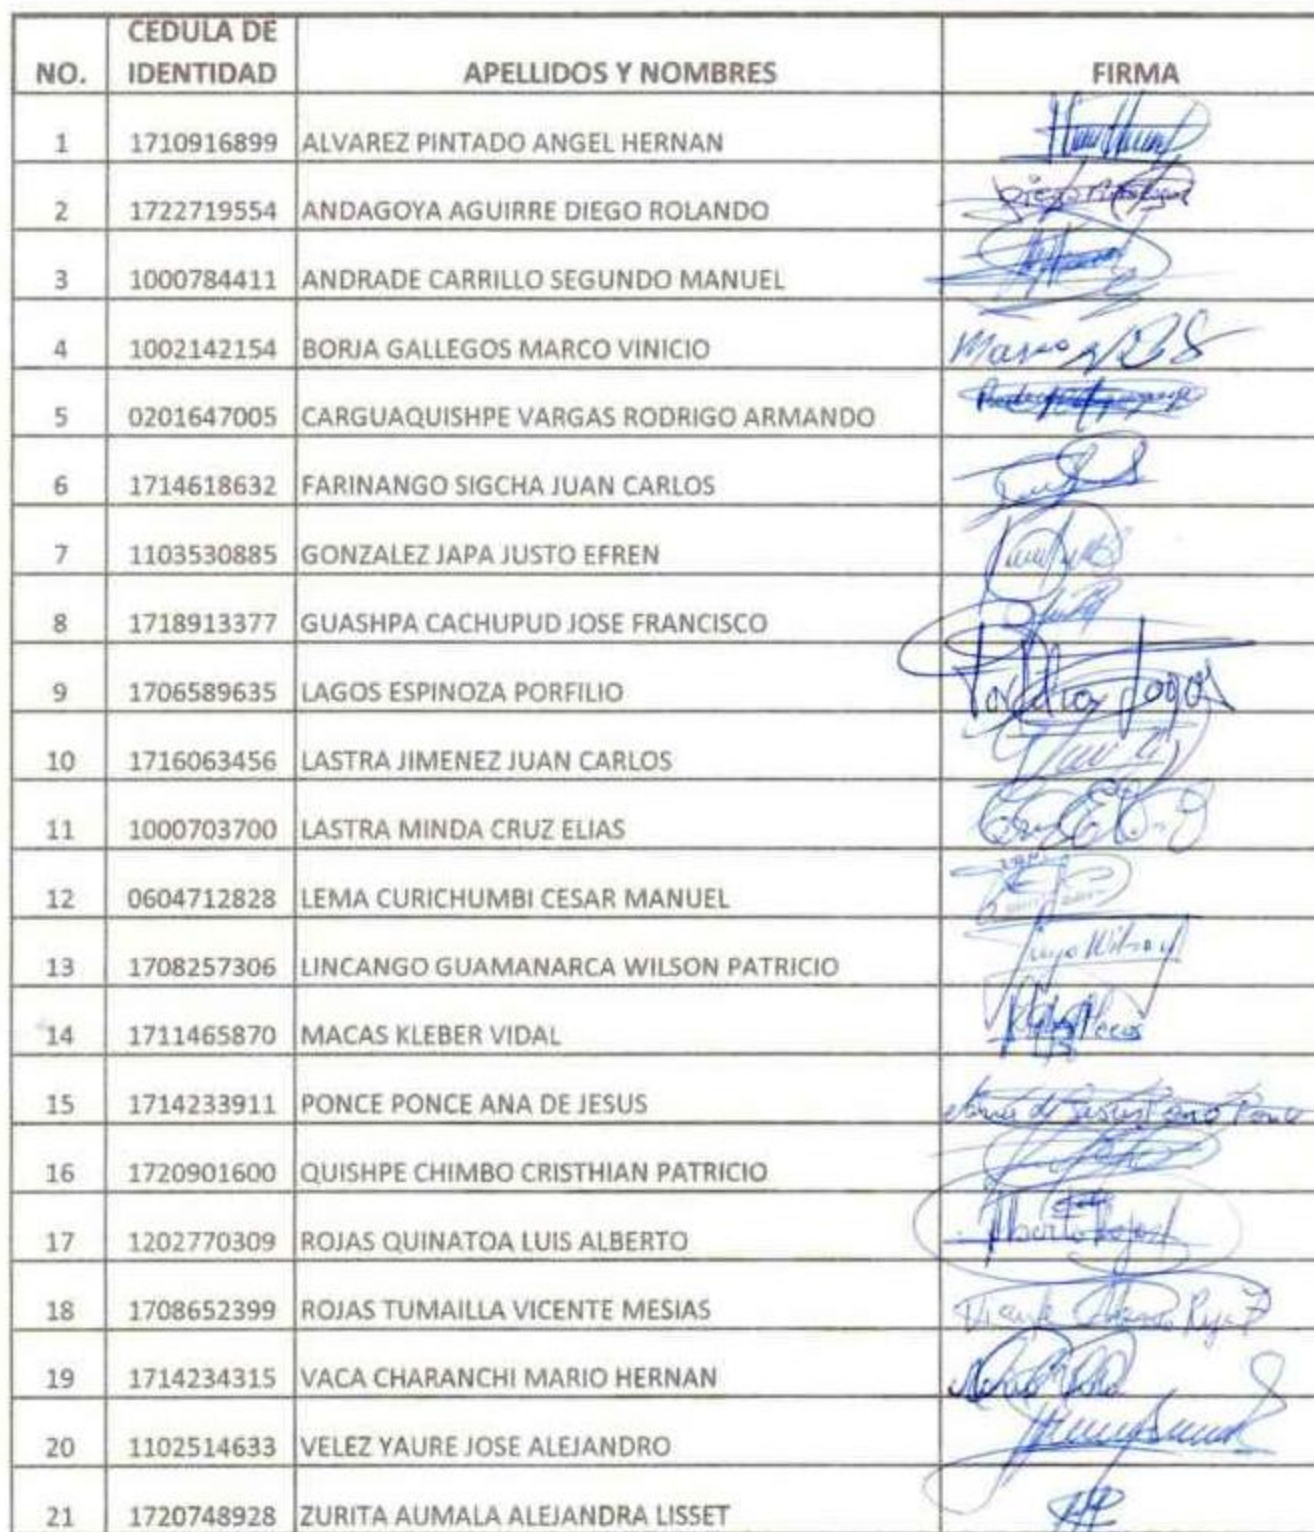 NO. CEDULA DE IDENTIDAD APELLIDOS Y NOMBRES FIRMA
1 1710916899 ALVAREZ PINTADO ANGEL HERNAN
2 1722719554 ANDAGOYA AGUIRRE DIEGO ROLANDO
3 1000784411 ANDRADE CARRILLO SEGUNDO MANUEL
4 1002142154 BORJA GALLEGOS MARCO VINICIO
5 0201647005 CARGUAQUISHPE VARGAS RODRIGO ARMANDO
6 1714618632 FARINANGO SIGCHA JUAN CARLOS
7 1103530885 GONZALEZ JAPA JUSTO EFREN
8 1718913377 GUASHPA CACHUPUD JOSE FRANCISCO
9 1706589635 LAGOS ESPINOZA PORFILIO
10 1716063456 LASTRA JIMENEZ JUAN CARLOS
11 1000703700 LASTRA MINDA CRUZ ELIAS
12 0604712828 LEMA CURICHUMBI CESAR MANUEL
13 1708257306 LINCANGO GUAMANARCA WILSON PATRICIO
14 1711465870 MACAS KLEBER VIDAL
15 1714233911 PONCE PONCE ANA DE JESUS
16 1720901600 QUISHPE CHIMBO CRISTHIAN PATRICIO
17 1202770309 ROJAS QUINATOA LUIS ALBERTO
18 1708652399 ROJAS TUMAILLA VICENTE MESIAS
19 1714234315 VACA CHARANCHI MARIO HERNAN
20 1102514633 VELEZ YAURE JOSE ALEJANDRO
21 1720748928 ZURITA AUMALA ALEJANDRA LISSET